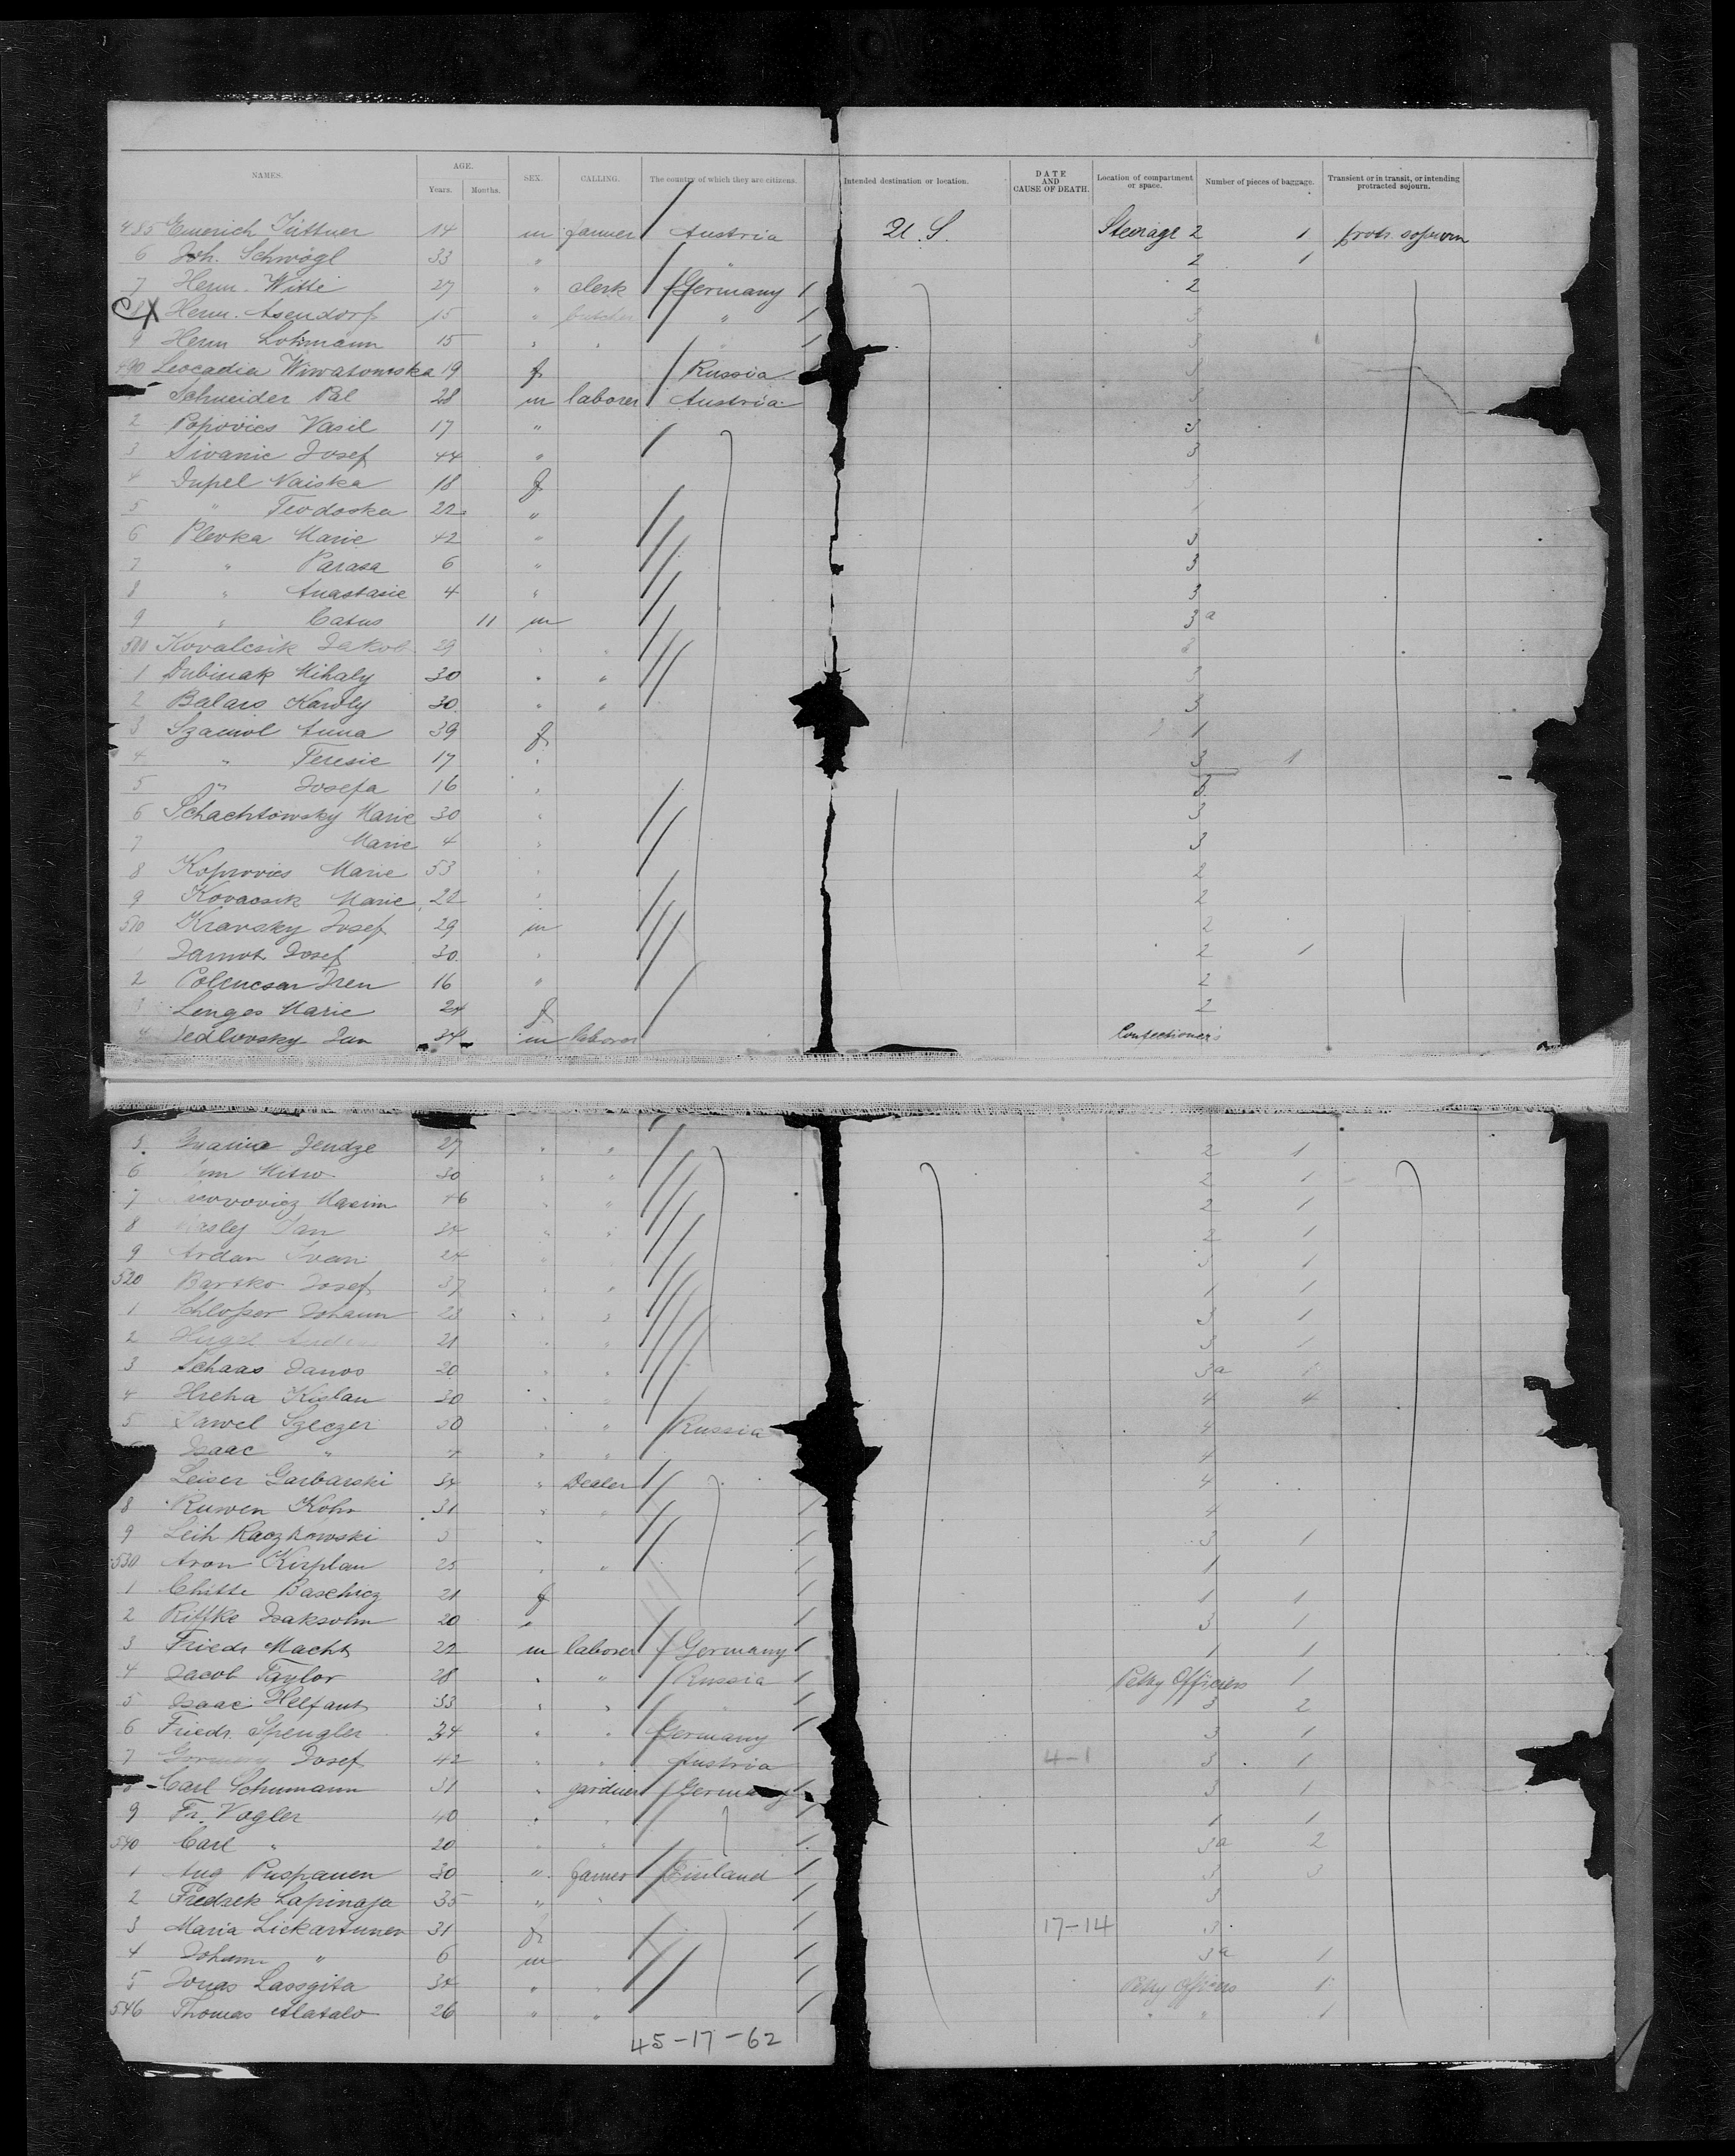 NAMES. AGE. SEX. CALLING. The country of which they are citizens. Intended destination or location. DATE AND CAUSE OF DEATH. Location of compartment or space. Number of pieces of baggage. Transient or in transit, or intending protracted sojourn.
Years. Months.
485 Emerich Tüttner 14 m farmer Austria U.S. Steerage 2 1 protr. sojourn
6 Joh. Schwögl 33 " " 2 1
7 Herm. Witte 27 " clerk Germany 2
Herm. Asendorf 15 " butcher " 3
9 Herm Lohmann 15 " " 3
490 Leocadia Wiwatowska 19 f Russia 3
Schneider Pal 28 m laborer Austria 3
2 Popovics Vasil 17 " 3
3 Sivanic Josef 44 " 3
4 Dupel Naiska 18 f
5 " Teodoska 22 " 1
6 Plevka Marie 42 " 3
7 " Parasa 6 " 3
8 " Anastasie 4 " 3
9 " Catus 11 m 3a
500 Kovalcsik Jakob 29 " "
1 Dubinak Mihaly 30 " " 3
2 Balars Karoly 30 " " 3
3 Szamol Anna 39 f 1
4 " Teresie 17 " 3 1
5 " Josefa 16 "
6 Schachtowsky Marie 30 " 3
7 Marie 4 " 3
8 Koprovics Marie 53 " 2
9 Kovacsik Marie 22 " 2
510 Kravsky Josef 29 m 2
Jamot Josef 30 " 2 1
2 Colencsar Iren 16 " 2
Lenges Marie 24 f 2
4 Jedlovsky Jan 34 m laborer Confectioner's
5 Jendze 27 " " 2 1
6 Mitro 30 " " 2 1
7 Maxim 46 " " 2 1
8 Jan 34 " " 2 1
9 Ardan Ivan 24 " 3 1
520 Barsko Josef 37 " " 1 1
1 Schlosser Johann 23 " " 3 1
2 21 " " 3 1
3 Schaas Janos 20 " " 3a 1
4 Hreha Kislan 30 " " 4 4
5 Pawel Szeczer 30 " " Russia 4
Isaac " " " 4
Leiser Garbarski 34 " Dealer 4
8 Ruwen Kohn 31 " " 4
9 Leih Raczkowski 3 " 3 1
530 Aron Kirplan 25 " " 1
1 Chitte Baschicz 21 f 1 1
2 Riffke Isaksohn 20 " 3 1
3 Friedr Macht 22 m laborer Germany 1 1
4 Jacob Taylor 28 " " Russia Petty Officers 1
5 Isaac Helfant 33 " " 3 2
6 Friedr. Spengler 34 " " Germany 3 1
7 Josef 42 " " Austria 4-1 3 1
Carl Schumann 31 " gardner Germany 3 1
9 Fr. Vogler 40 " " 1 1
540 Carl " 20 " " 3a 2
1 Aug Puspanen 30 " farmer Finland 3 3
2 Fredrek Lapinaja 35 " " 3
3 Maria Lickartunen 31 f 17-14 3
4 Johann " 6 m 3a 1
5 Jonas Lassgita 34 " " Petty Officers 1
546 Thomas Alatalo 26 " " " " 1
45-17-62